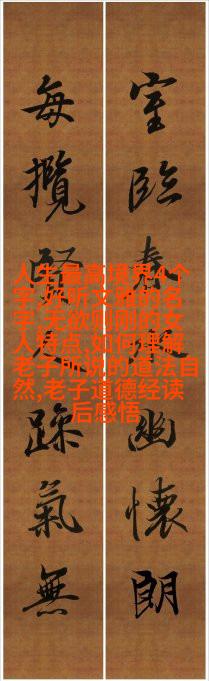 室臨春幽懷朗
每攬躁氣無
人生最高境界4个
字,好听文雅的名
字,无欲则刚的女
人特点,如何理解
老子所说的道法自
然,老子道德经读
后感悟